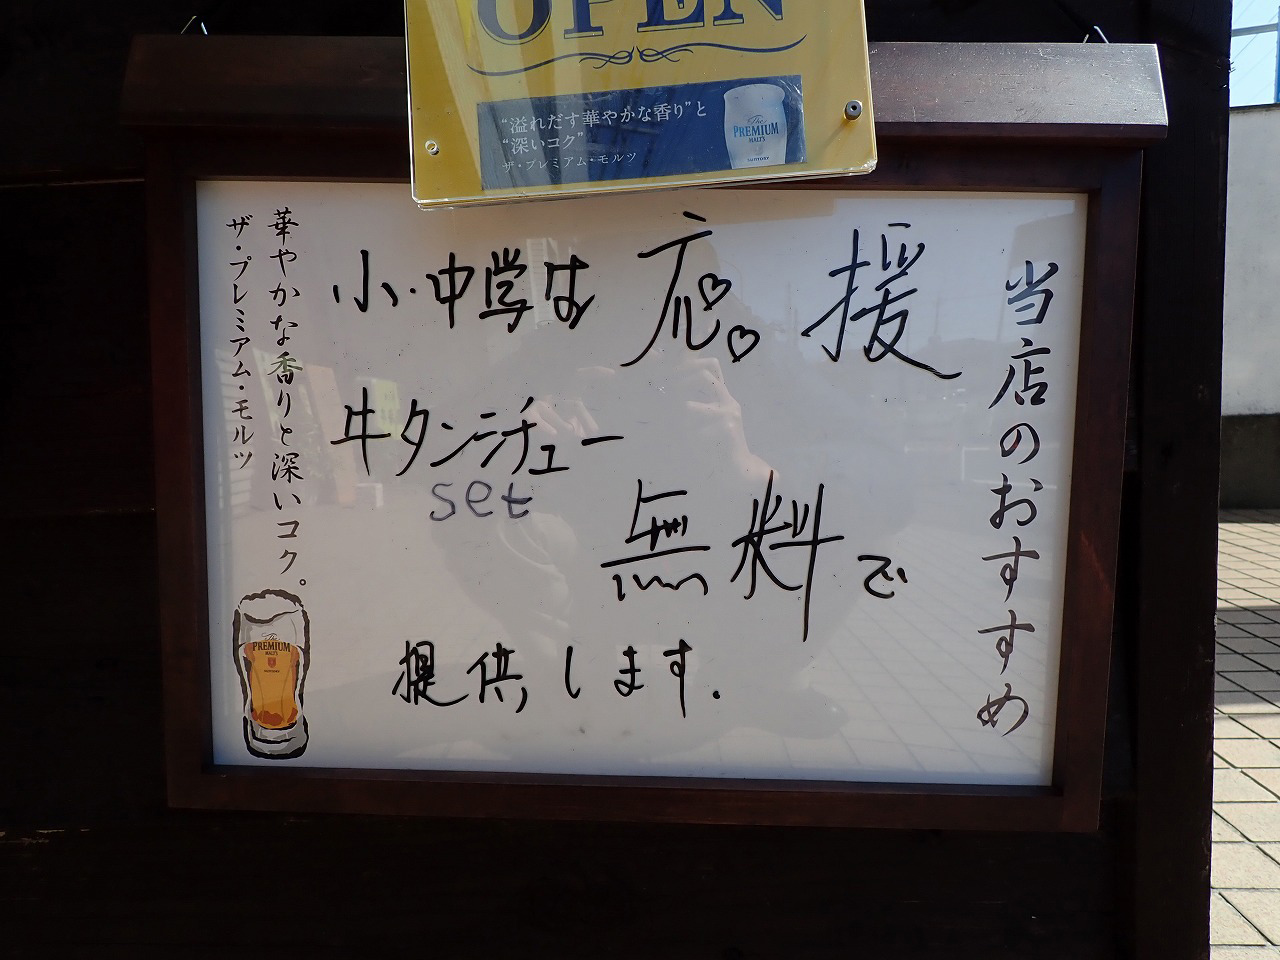 OPEN
“溢れだす華やかな香り”と
“深いコク”
ザ・プレミアム・モルツ
The
PREMIUM
MALT'S
SUNTORY
当店のおすすめ
小・中学は 応援
牛タンシチュー
set
無料で
提供します.
華やかな香りと深いコク。
ザ・プレミアム・モルツ
The
PREMIUM
MALT'S